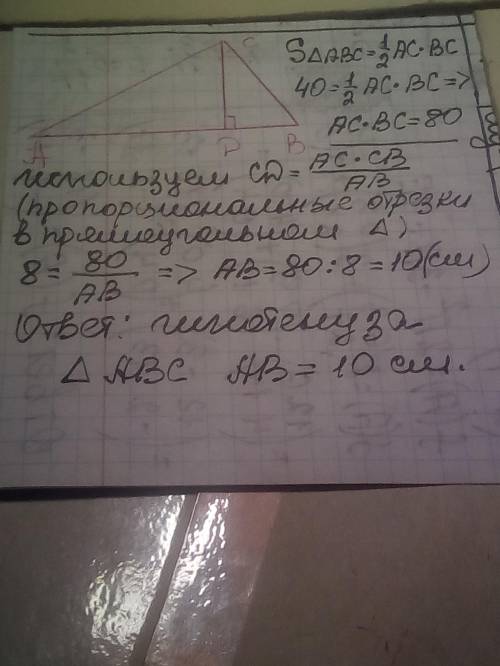 C
A
D
B
S△ABC=1/2 AC·BC
40=1/2 AC·BC=>
AC·BC=80
используем CD= AC·CB/AB
(пропорциональные отрезки
в прямоугольном △)
8= 80/AB => AB=80:8=10(см)
Ответ: гипотенуза
△ ABC AB= 10 см.